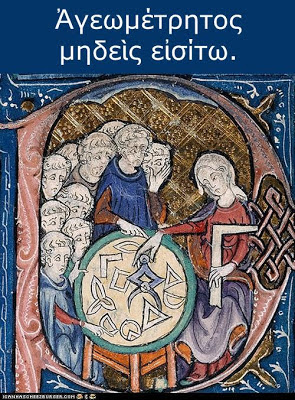 Ἀγεωμέτρητος
μηδεὶς εἰσίτω.
ICANHASCHEEZBURGER.COM